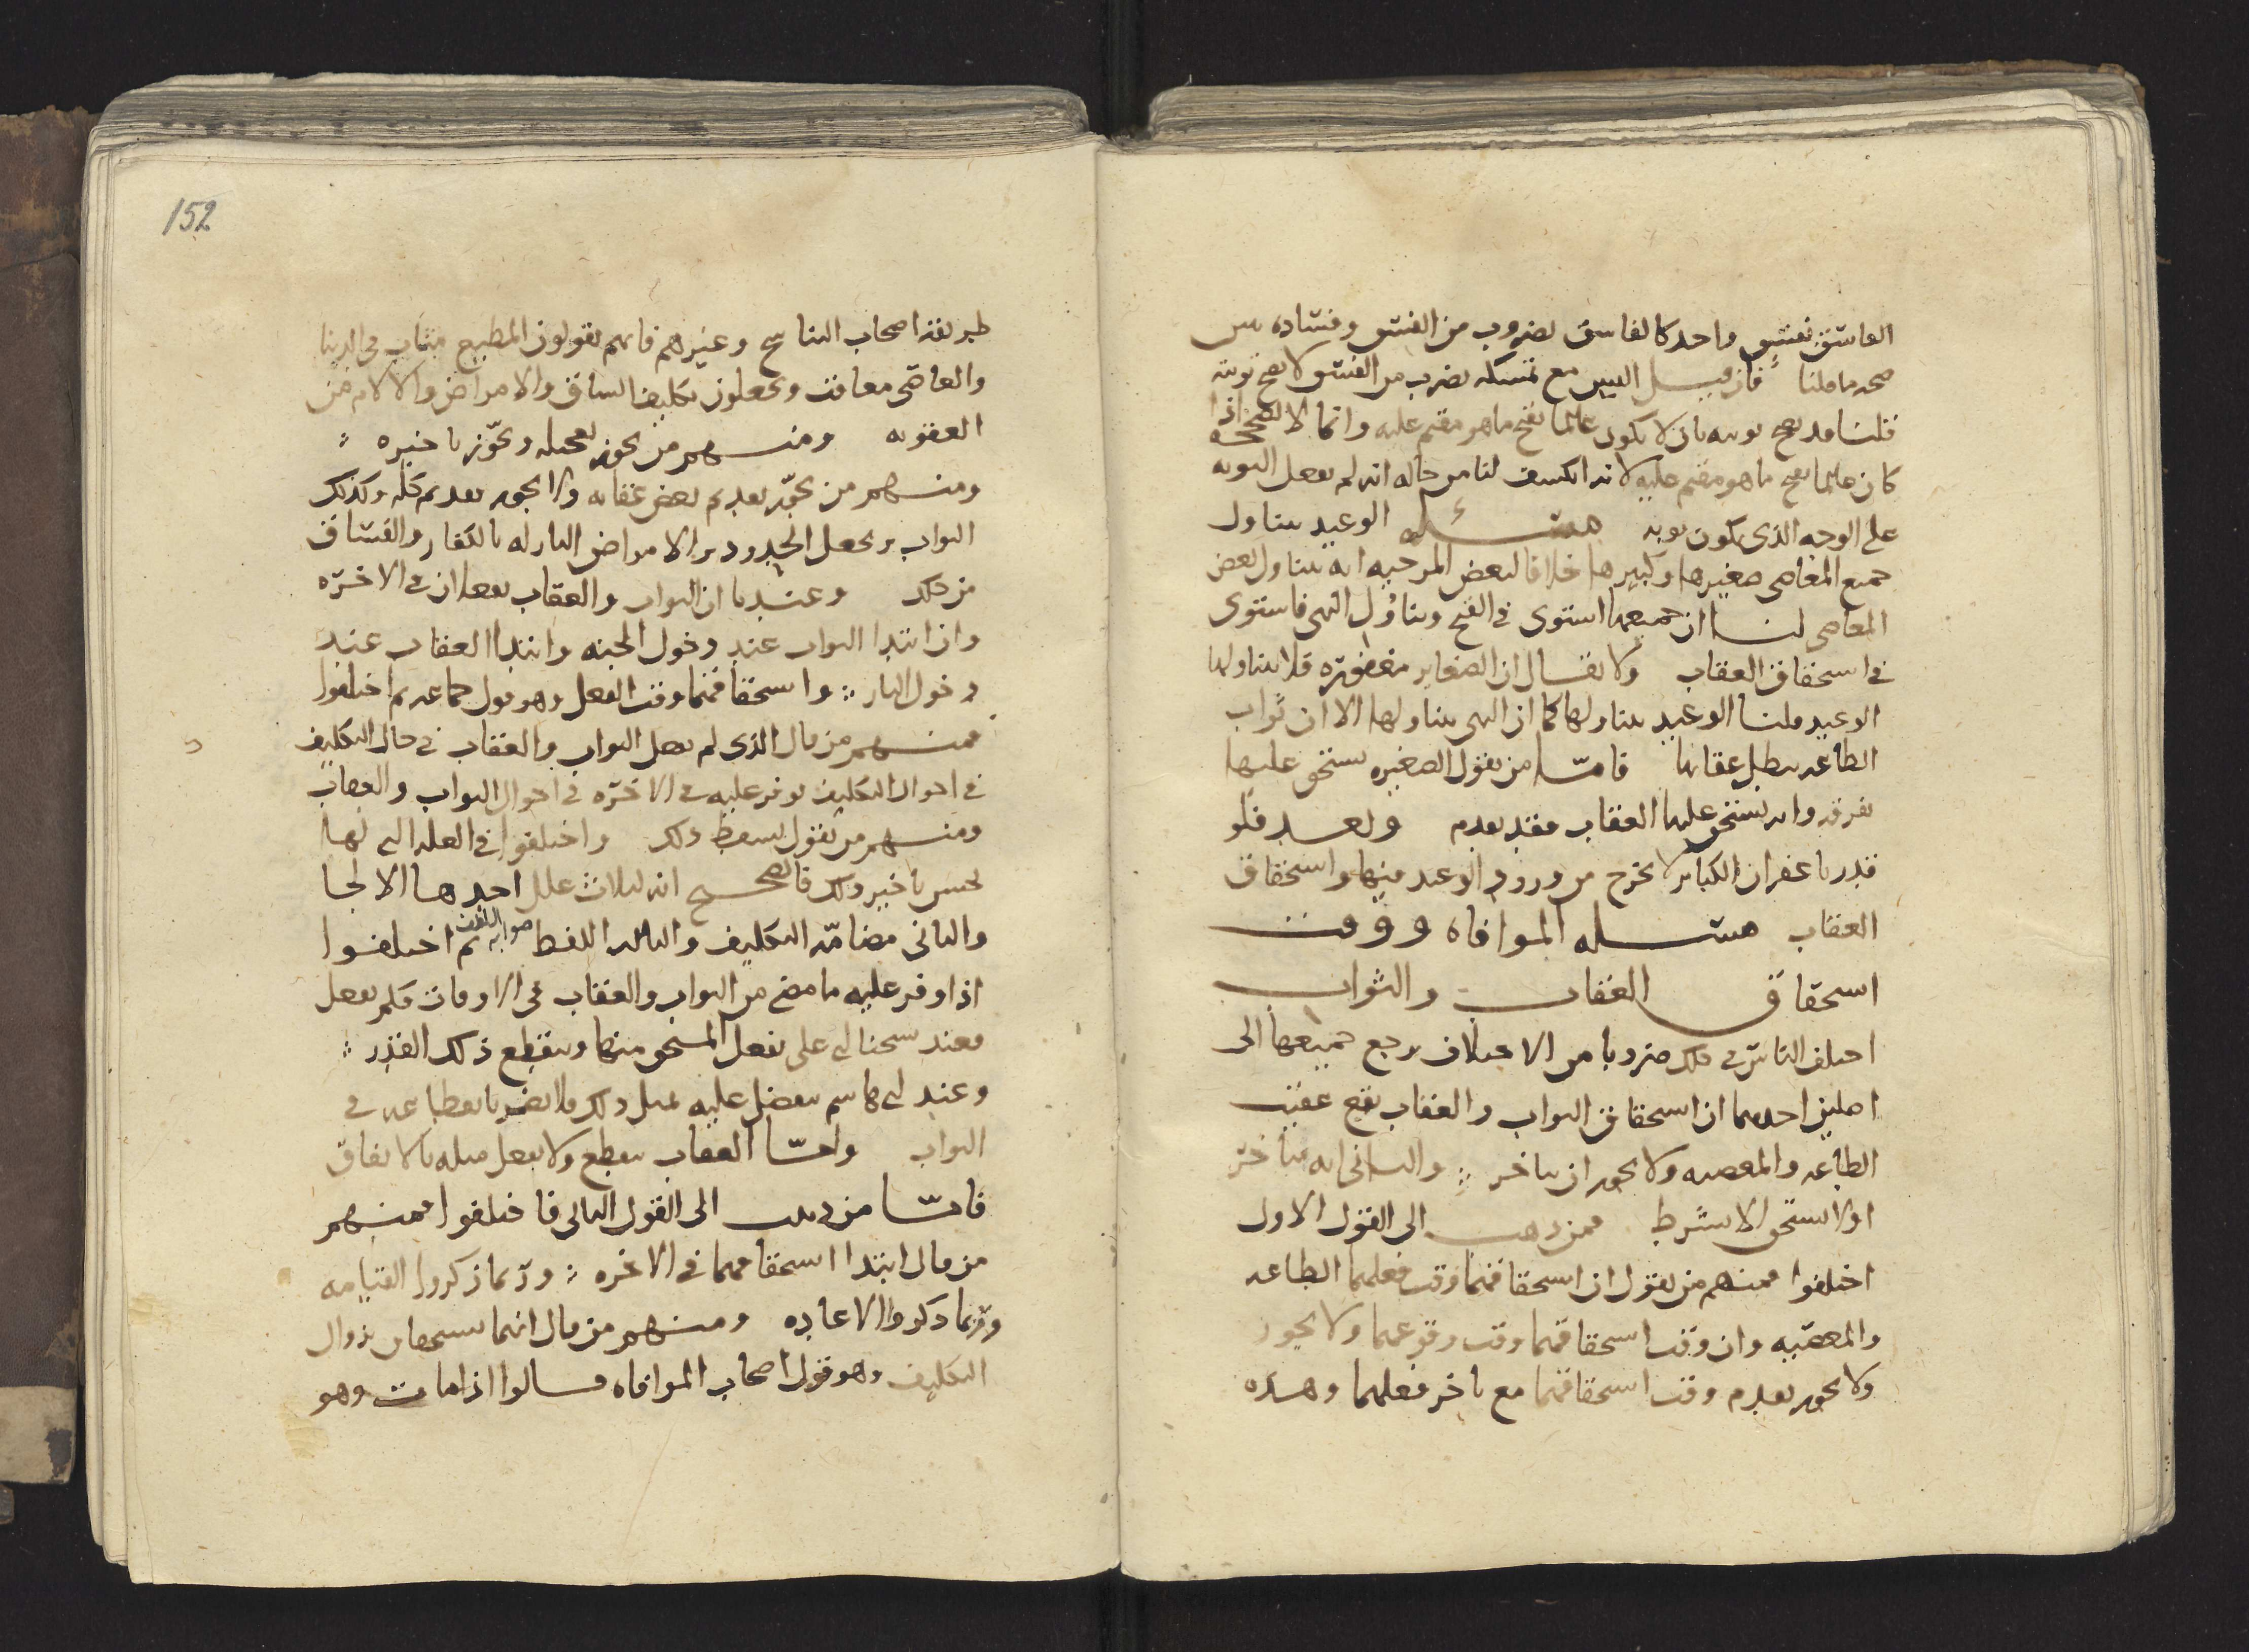 الفاسق بفسق واحد كالفاسق بضروب من الفسق وفساده يبين
صحة ما قلنا فان قيل اليس مع تمسكه بضرب من الفسق لا تصح توبته
قلنا قد تصح توبته بان لا يكون عالما بقبح ما هو مقيم عليه وانما لا تصح اذا
كان عالما بقبح ما هو مقيم عليه لانه انكشف لنا من حاله انه لم يفعل التوبة
على الوجه الذي يكون توبة مسئلة الوعيد يتناول
جميع المعاصي صغيرها وكبيرها خلافا لبعض المرجية انه يتناول بعض
المعاصي لنا ان جميعها استوى في القبح وتناول النهي فاستوى
في استحقاق العقاب ولا يقال ان الصغاير مغفورة فلا يتناولها
الوعيد قلنا الوعيد يتناولها كما ان النهي يتناولها الا ان ثواب
الطاعة يبطل عقابها فاما من يقول الصغيرة يستحق عليها
وانه يستحق عليها العقاب فقد تقدم وبعد فلو
قدرنا غفران الكباير لا يخرج من ورود الوعيد فيها واستحقاق
العقاب مسئلة الموافاة ووقت
استحقاق العقاب والثواب
اختلف الناس في ذلك ضروبا من الاختلاف يرجع جميعها الى
اصلين احدهما ان استحقاق الثواب والعقاب يقع عقيب
الطاعة والمعصية ولا يجوز ان يتاخر والثاني انه يتاخر
اولا يستحق الا بشرط فمن ذهب الى القول الاول
اختلفوا فمنهم من يقول ان استحقاقهما وقت فعلهما الطاعة
والمعصية وان وقت استحقاقهما وقت وقوعهما ولا يجوز
ولا يجوز تقدم وقت استحقاقهما مع تاخر فعلهما وهذه
152
طريقة اصحاب التناسخ وغيرهم فانهم يقولون المطيع مثاب في الدنيا
والعاصي معاقب ويجعلون تكليف الشاق والامراض والالام من
العقوبة ومنهم من يجوز تعجيله ويجوز تاخيره
ومنهم من يجوز تقديم بعض عقابه ولا يجوز تقديم كله وكذلك
الثواب ويجعل الحدود والامراض النازلة بالكفار والفساق
من ذلك وعندنا ان الثواب والعقاب يفعلان في الاخرة
وان ابتدا الثواب عند دخول الجنة وابتدا العقاب عند
دخول النار واستحقاقهما وقت الفعل وهو قول جماعة ثم اختلفوا
فمنهم من قال الذي لم يفعل الثواب والعقاب في حال التكليف
في احوال التكليف توفر عليه في الاخرة في احوال الثواب والعقاب
ومنهم من يقول يسقط ذلك واختلفوا في العلة التي لها
يحسن تاخير ذلك فالصحيح انه لثلاث علل احدها الالجا
والثاني مضامة التكليف والثالث اللفظ صوابه اللطف ثم اختلفوا
اذا وفر عليه ما مضى من الثواب والعقاب في الاوقات فلم يفعل
فعند شيخنا ابي علي يفعل المستحق منهما وينقطع ذلك القدر
وعند ابي هاشم يتفضل عليه بمثل ذلك فلا يضر بانقطاعه في
الثواب واما العقاب ينقطع ولا يفعل مثله بالاتفاق
فاما من ذهب الى القول الثاني فاختلفوا فمنهم
من قال ابتدا استحقاقهما في الاخرة وربما ذكروا القيامة
وربما ذكروا الاعادة ومنهم من قال انهما يستحقان بزوال
التكليف وهو قول اصحاب الموافاة قالوا اذا مات وهو